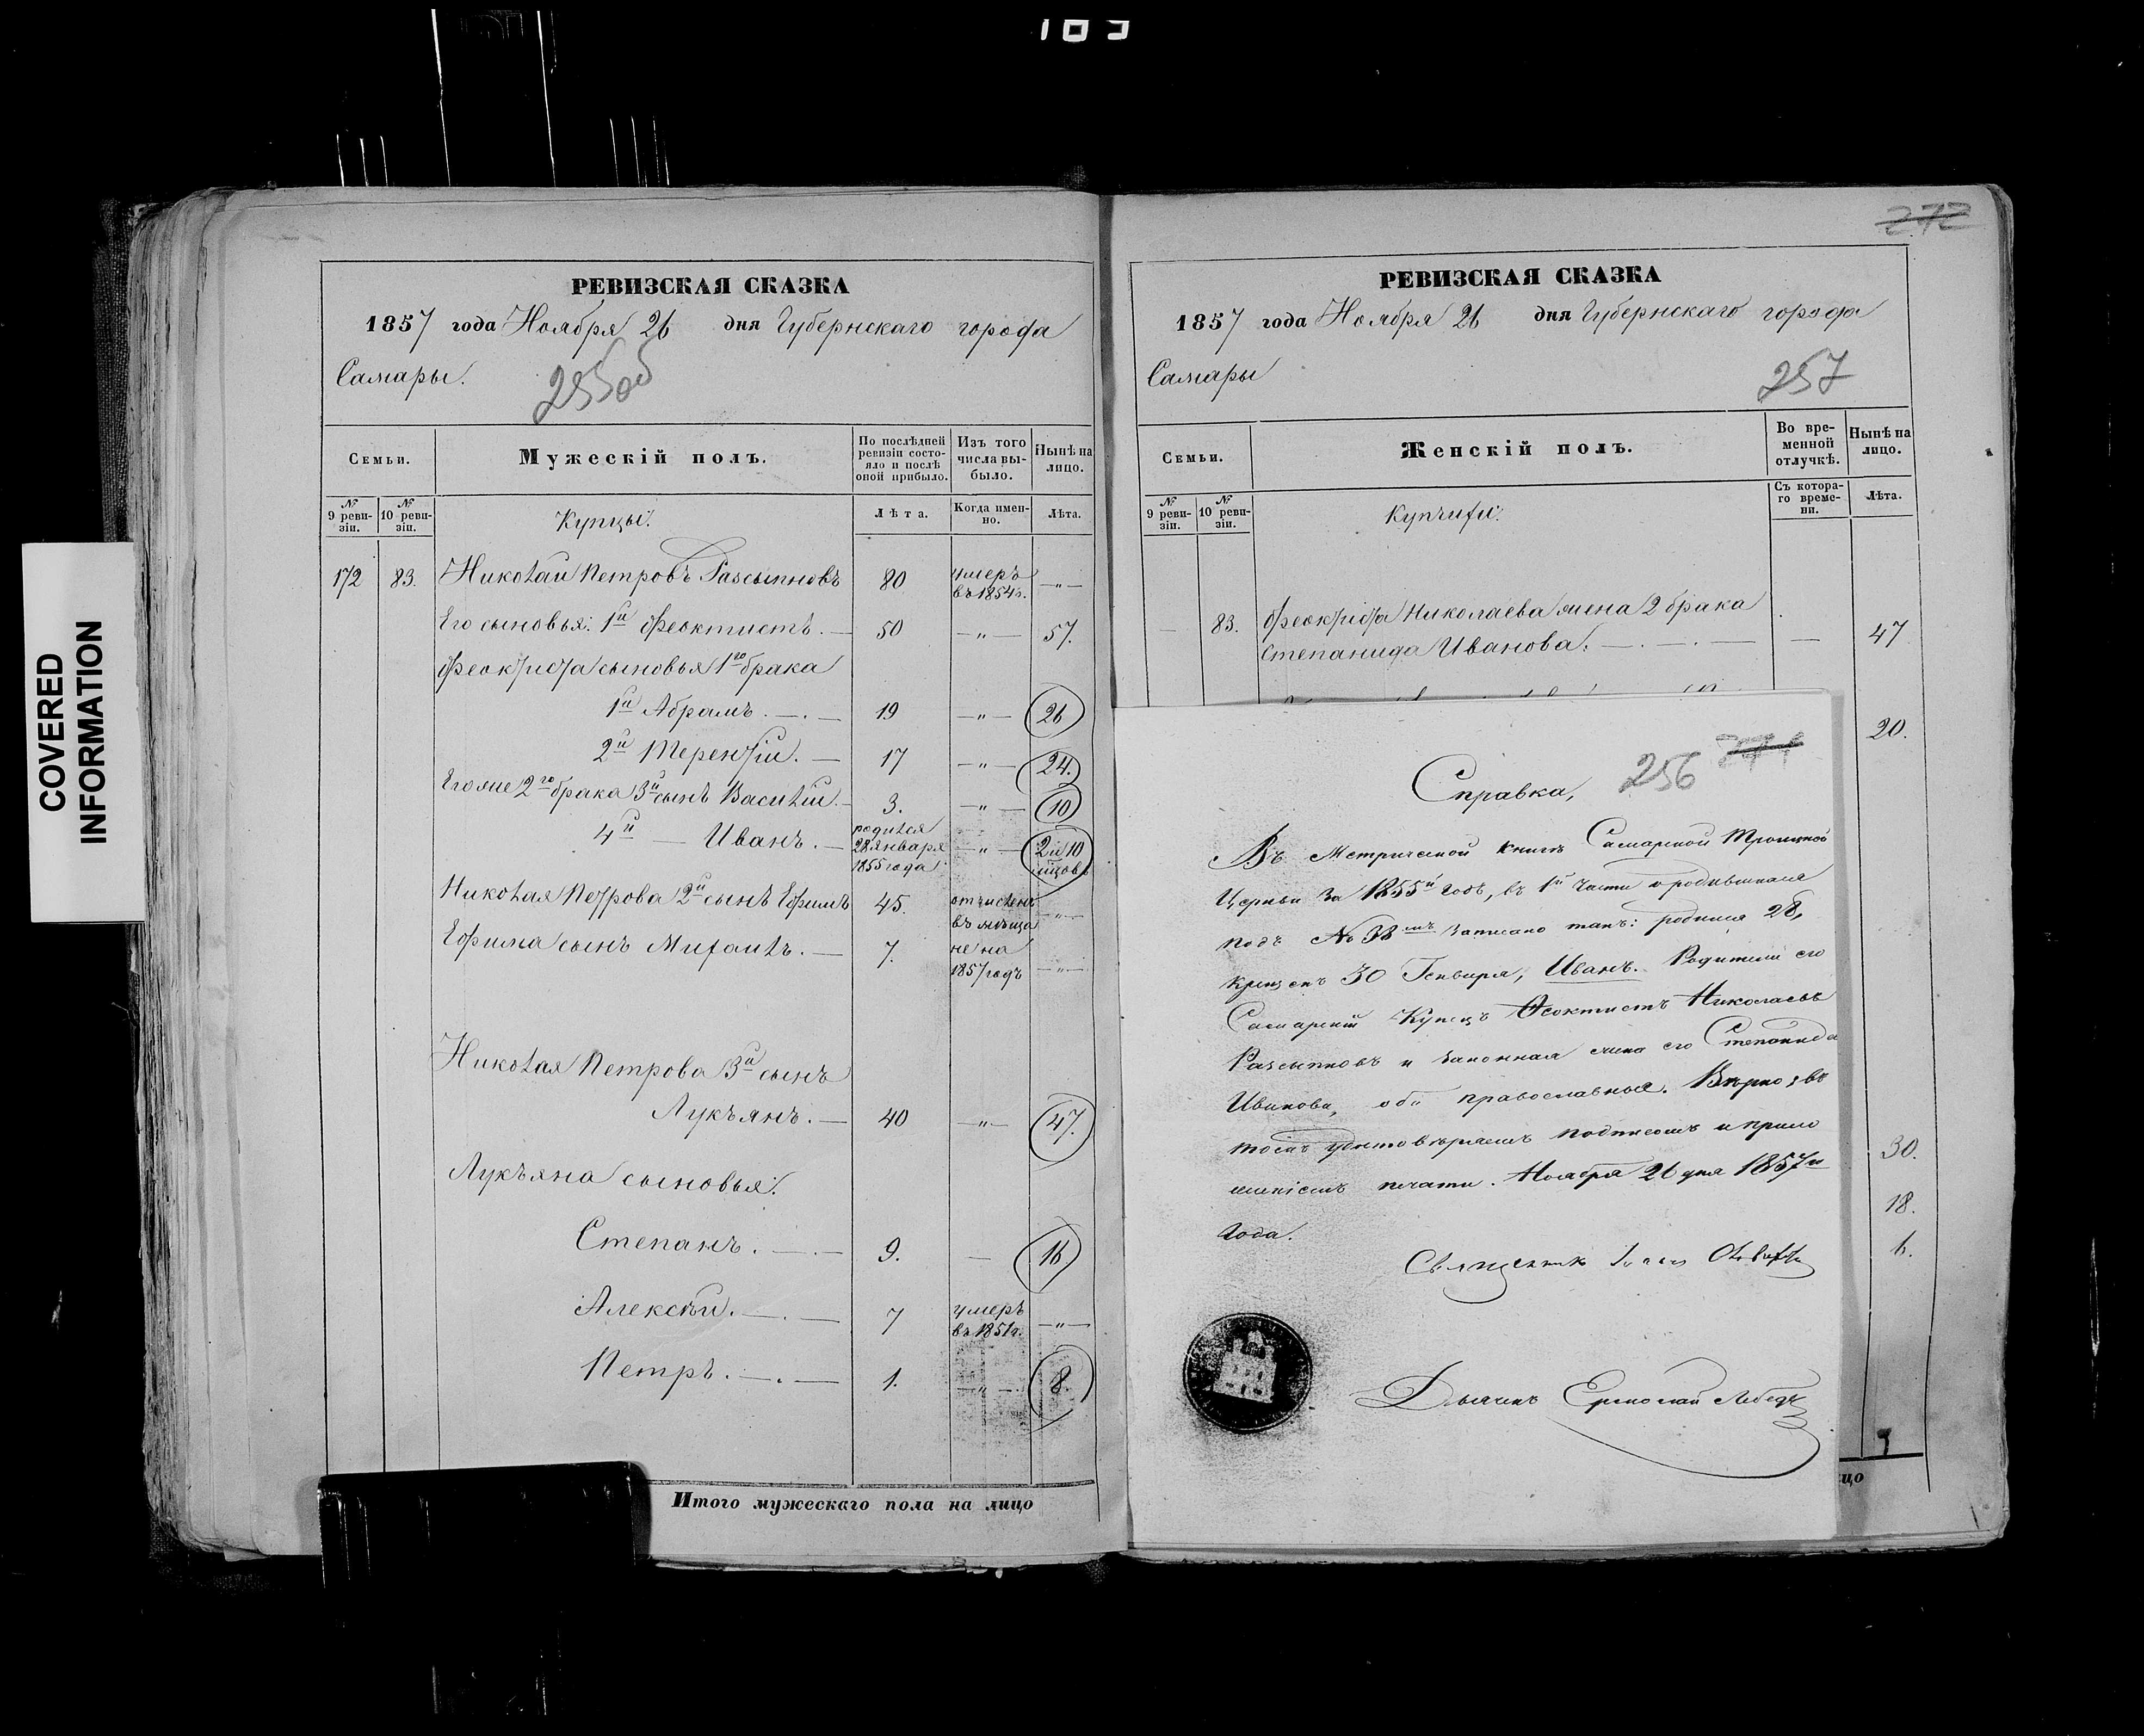 103
COVERED
INFORMATION
РЕВИЗСКАЯ СКАЗКА
1857 года Ноября 26 дня Губернскаго города
Самары.
255об
Семьи.
Мужескій полъ.
По послѣдней ревизіи состояло и послѣ оной прибыло.
Изъ того числа выбыло.
Нынѣ на лицо.
№ 9 ревизіи.
№ 10 ревизіи.
Купцы.
Лѣта.
Когда именно.
Лѣта.
172 83. Николай Петровъ Разсыпновъ 80 умеръ въ 1854г. —„—
Его сыновья: 1й Феоктистъ. — 50 —„— 57.
Феоктиста сыновья 1го брака
1й Абрамъ. —.— 19 —„— 26
2й Терентій. — 17 —„— 24.
Его же 2го брака 3й сынъ Василій. — 3. —„— 10
4й — Иванъ. — родился 28 января 1855 года —„— 2 и 10 мцовъ
Николая Петрова 2й сынъ Ефимъ 45. отчисленъ въ мѣща —„—
Ефима сынъ Михаилъ. — 7. не на 1857 годъ —„—
Николая Петрова 3й сынъ
Лукъянъ. — 40 —„— 47.
Лукъяна сыновья:
Степанъ. —.— 9. — 16
Алексѣй. —.— 7 умеръ въ 1851г. —„—
Петръ. —.— 1. —„— 8
Итого мужескаго пола на лицо
272
РЕВИЗСКАЯ СКАЗКА
1857 года Ноября 26 дня Губернскаго города
Самары
257
Семьи.
Женскій полъ.
Во временной отлучкѣ.
Нынѣ на лицо.
№ 9 ревизіи.
№ 10 ревизіи.
Купчихи.
Съ котораго времени.
Лѣта.
— 83. Феоктиста Николаева жена 2 брака
Степанида Иванова. —.—.— — 47
20.
30.
18.
1.
цо
256
Справка,
Въ Метрической книгѣ Самарской Троицкой
Церкви за 1855й годъ, въ 1й части о родившихся
подъ № 38мъ записано такъ: родился 28,
крещенъ 30 Генваря, Иванъ. Родители его
Самарскій Купецъ Ѳеоктистъ Николаевъ
Разсыпновъ и законная жена его Степанида
Иванова, оба православные. Вѣрно, въ
томъ удостовѣряемъ подписомъ и прило
женіемъ печати. Ноября 26 дня 1857й
Года.
Священникъ
Дьячекъ